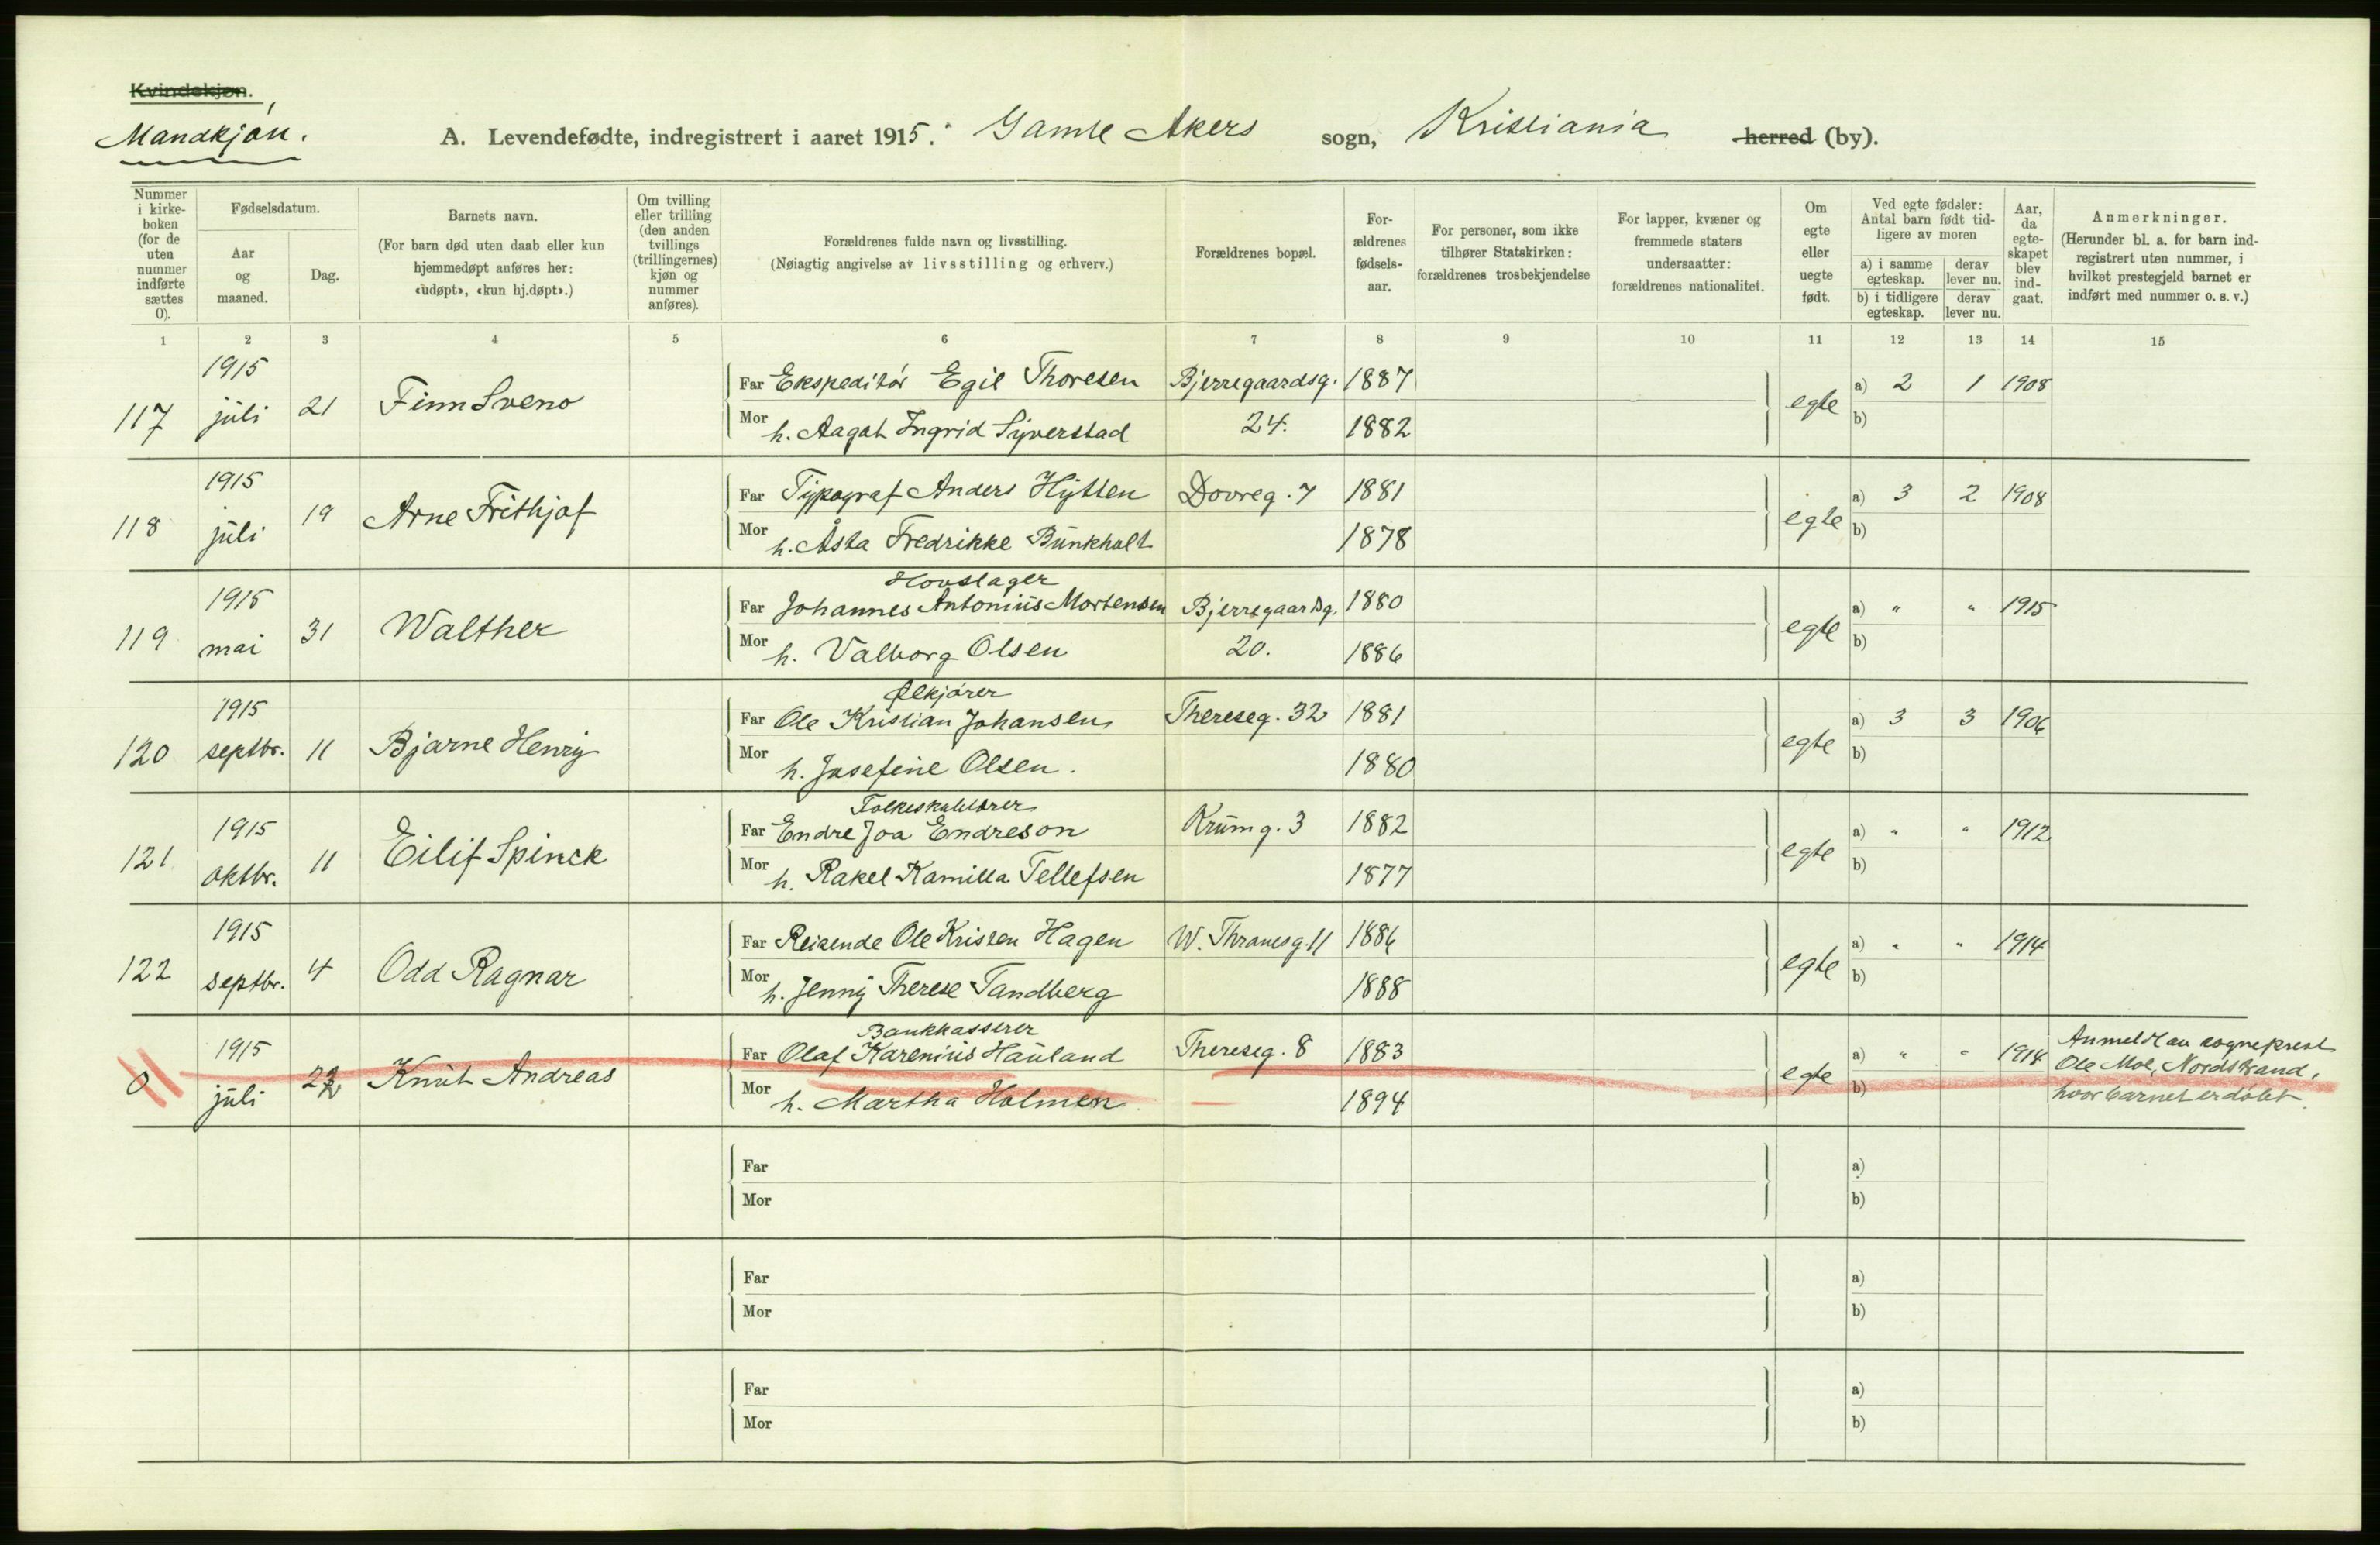 Kvindekjøn.
Mandkjøn.
A. Levendefødte, indregistrert i aaret 1915. Gamle Akers sogn, Kristiania herred (by).
Nummer i kirkeboken (for de uten nummer indførte sættes 0).
Fødselsdatum.
Aar og maaned.
Dag.
Barnets navn.
(For barn død uten daab eller kun hjemmedøpt anføres her: «udøpt», «kun hj.døpt».)
Om tvilling eller trilling (den anden tvillings (trillingernes) kjøn og nummer anføres).
Forældrenes fulde navn og livsstilling.
(Nøiagtig angivelse av livsstilling og erhverv.)
Forældrenes bopæl.
Forældrenes fødselsaar.
For personer, som ikke tilhører Statskirken: forældrenes trosbekjendelse
For lapper, kvæner og fremmede staters undersaatter: forældrenes nationalitet.
Om egte eller uegte født.
Ved egte fødsler: Antal barn født tidligere av moren
a) i samme egteskap.
derav lever nu.
b) i tidligere egteskap.
derav lever nu.
Aar, da egteskapet blev indgaat.
Anmerkninger.
(Herunder bl. a. for barn indregistrert uten nummer, i hvilket prestegjeld barnet er indført med nummer o. s. v.)
1 2 3 4 5 6 7 8 9 10 11 12 13 14 15
117 1915 juli 21 Finn Sveno
Far Ekspeditør Egil Thoresen Bjerregaardsg. 1887 egte a) 2 1 1908
Mor h. Aagot Ingrid Syverstad 24. 1882 b)
118 1915 juli 19 Arne Frithjof
Far Typograf Anders Hytten Dovreg. 7 1881 egte a) 3 2 1908
Mor h. Åsta Fredrikke Bunkholt 1878 b)
119 1915 mai 31 Walther
Hovslager
Far Johannes Antonius Mortensen Bjerregaardsg. 1880 egte a) " " 1915
Mor h. Valborg Olsen 20. 1886 b)
120 1915 septbr. 11 Bjarne Henry
Ølkjører
Far Ole Kristian Johansen Thereseg. 32 1881 egte a) 3 3 1906
Mor h. Josefine Olsen. 1880 b)
121 1915 oktbr. 11 Eilif Spinck
Far Endre Joa Endreson Krumg. 3 1882 egte a) " " 1912
Mor h. Rakel Kamilla Tellefsen 1877 b)
122 1915 septbr. 4 Odd Ragnar
Far Reisende Ole Kristen Hagen W. Thranesg. 11 1886 egte a) " " 1914
Mor h. Jenny Therese Tandberg 1888 b)
0 1915 juli 22 Knut Andreas
Bankkasserer
Far Olaf Karenius Hauland Thereseg. 8 1883 egte a) " " 1914
Mor h. Martha Holmen 1894 b)
Anmeldt av sogneprest
Ole Moe, Nordstrand,
hvor barnet er døbt.
Far a)
Mor b)
Far a)
Mor b)
Far a)
Mor b)